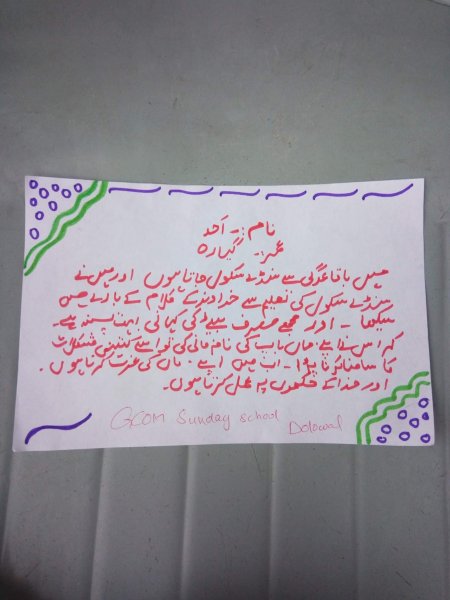 نام :- احد
عمر :- گیارہ
میں باقاعدگی سے سنڈے سکول جاتا ہوں اور میں نے
سنڈے سکول کی تعلیم سے خداوند کے کلام کے بارے میں
سیکھا - اور مجھے مصرف بیٹے کی کہانی بہت پسند ہے۔
کہ اس نے اپنے ماں باپ کی نافرمانی کی تو اسے کتنی مشکلات
کا سامنا کرنا پڑا - اب میں اپنے ماں کی عزت کرتا ہوں۔
اور خدا کے حکموں پہ عمل کرتا ہوں۔
GCOM Sunday school
Dolowal